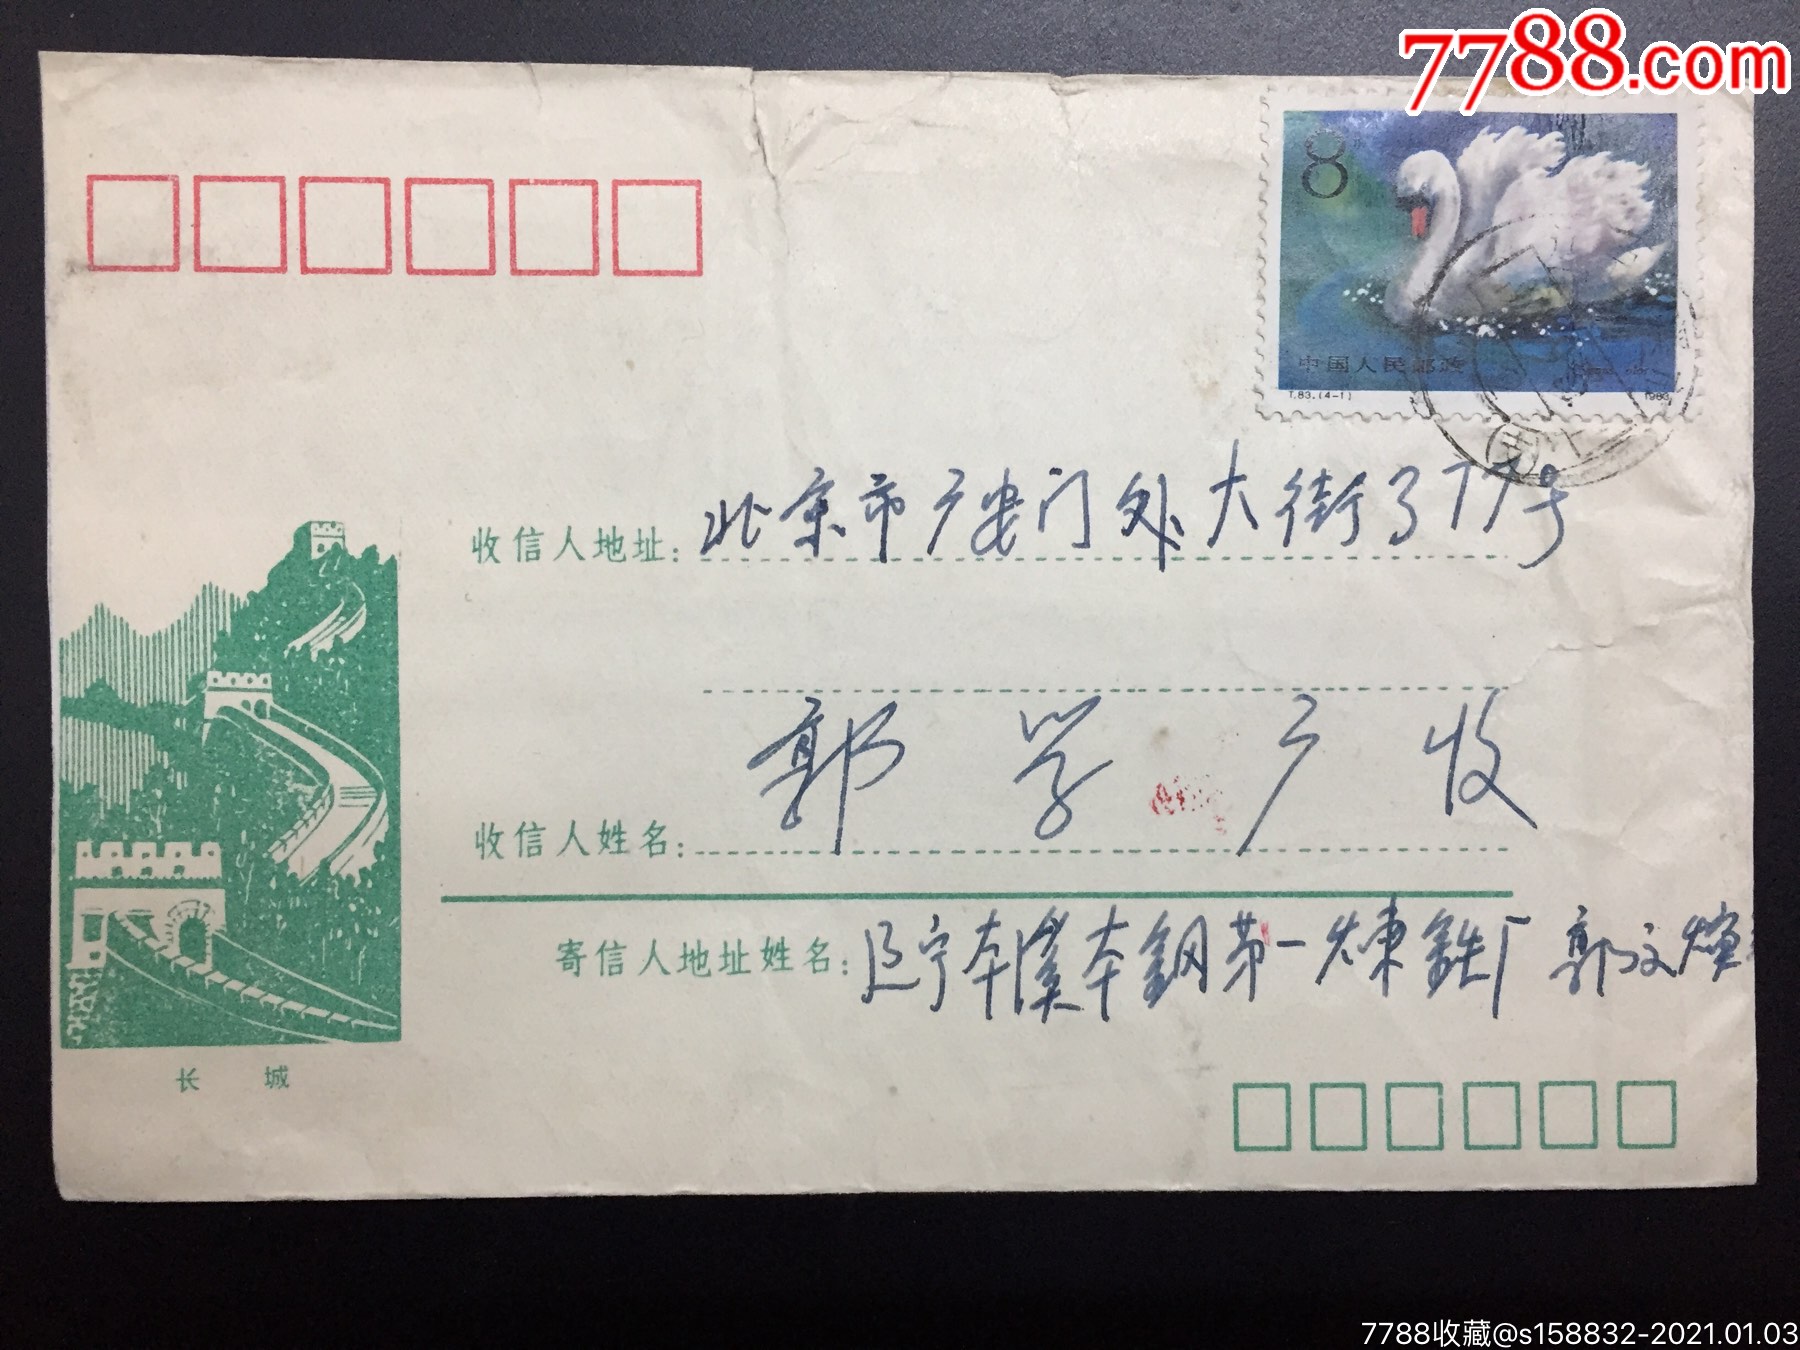 7788.com
8分
中国人民邮政
T.83.(4-1) 1983
收信人地址: 北京市广安门外大街377号
收信人姓名: 郭学广收
寄信人地址姓名: 辽宁本溪本钢第一炼铁厂 郭文
长城
7788收藏@s158832-2021.01.03